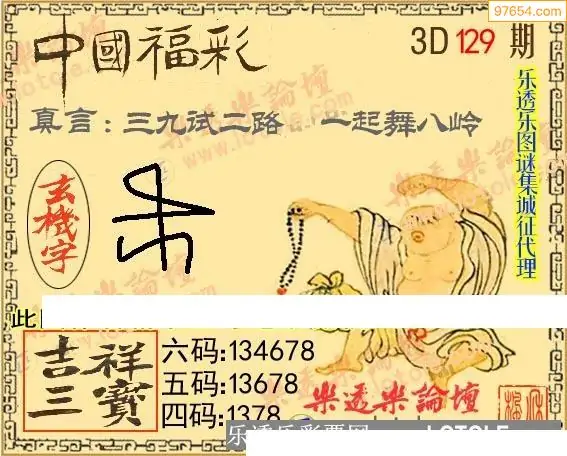 97654.com
中國福彩
3D 129 期
真言：三九试二路 一起舞八岭
乐透乐图谜集诚征代理
玄機字
此
吉祥三寶
六码:134678
五码:13678
四码:1378
樂透樂論壇
乐透乐彩票网